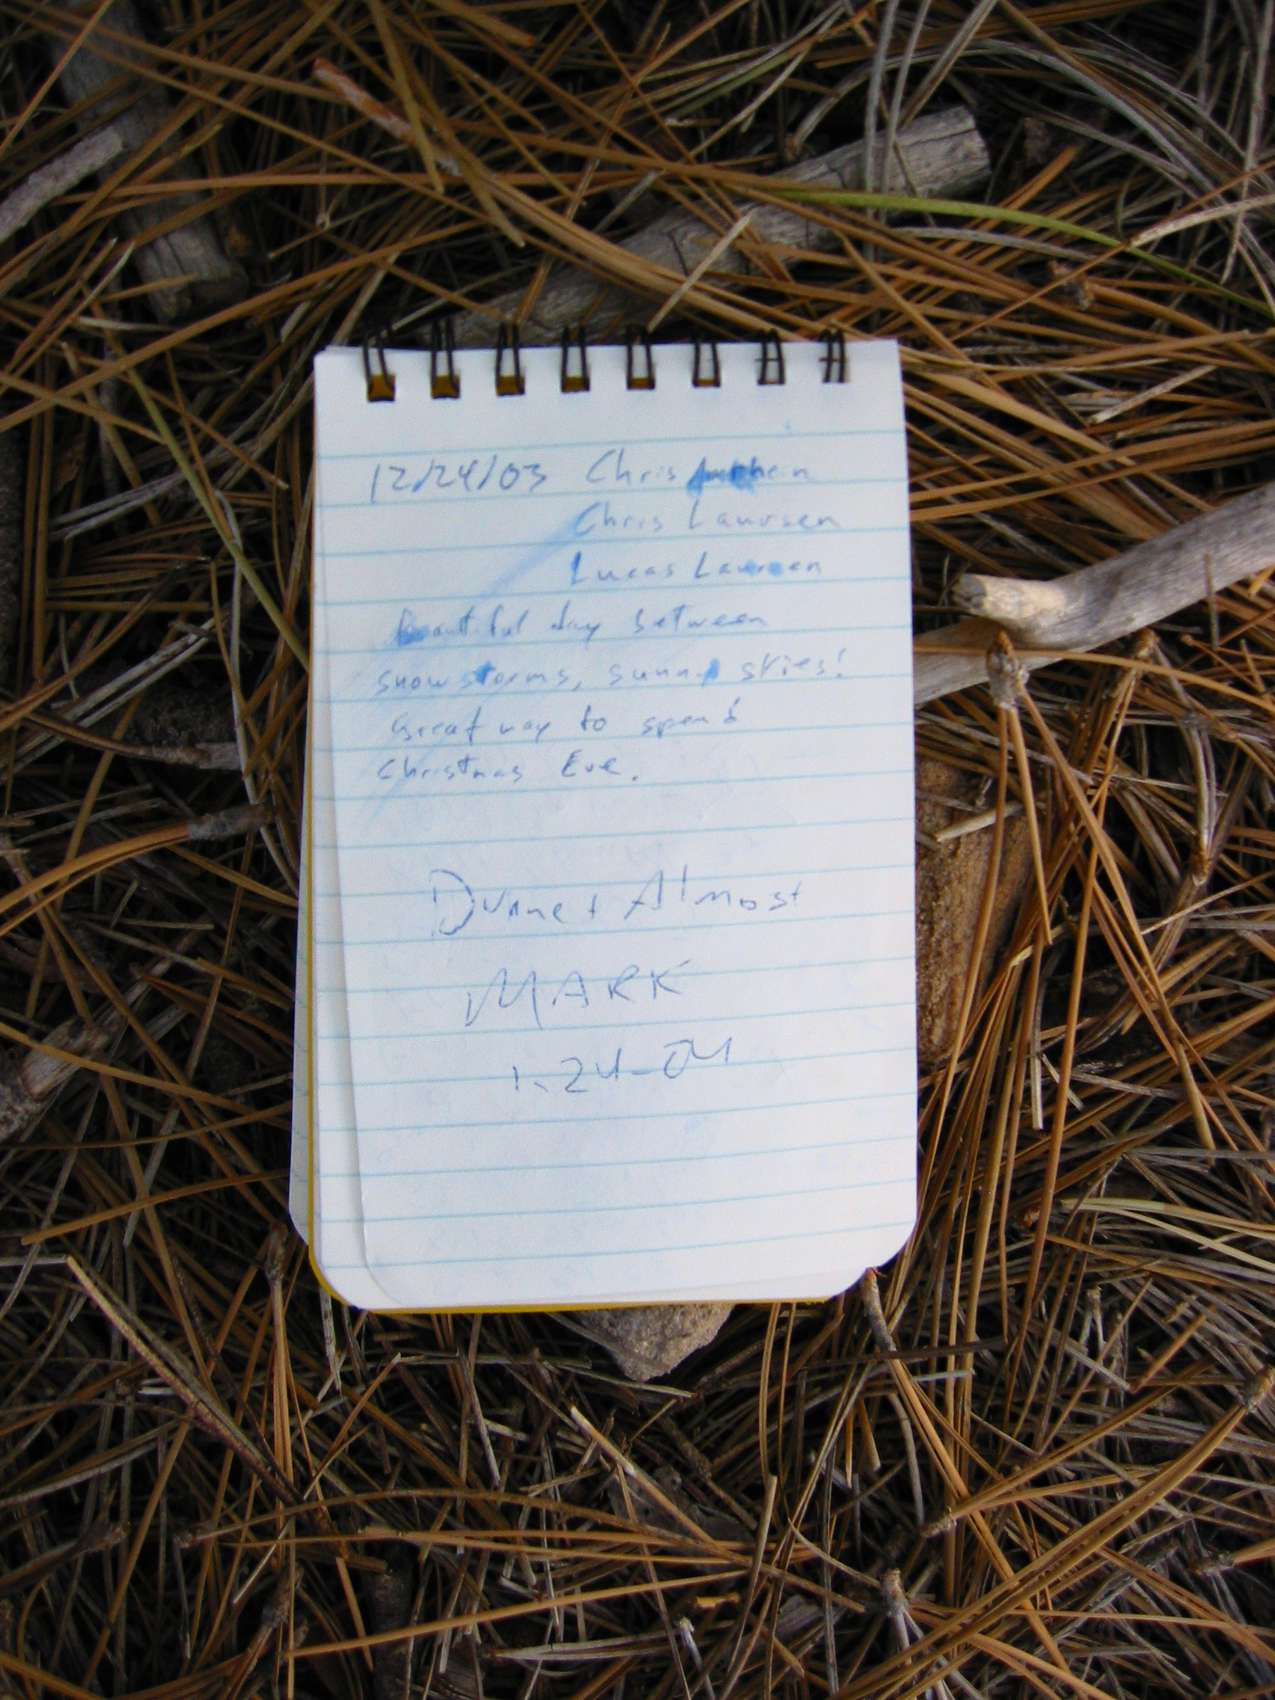 12/24/03 Chris
Chris Laursen
Lucas Laursen
Beautiful day between
snowstorms, sunny skies!
Great way to spend
Christmas Eve.
Almost
MARK
1-24-04